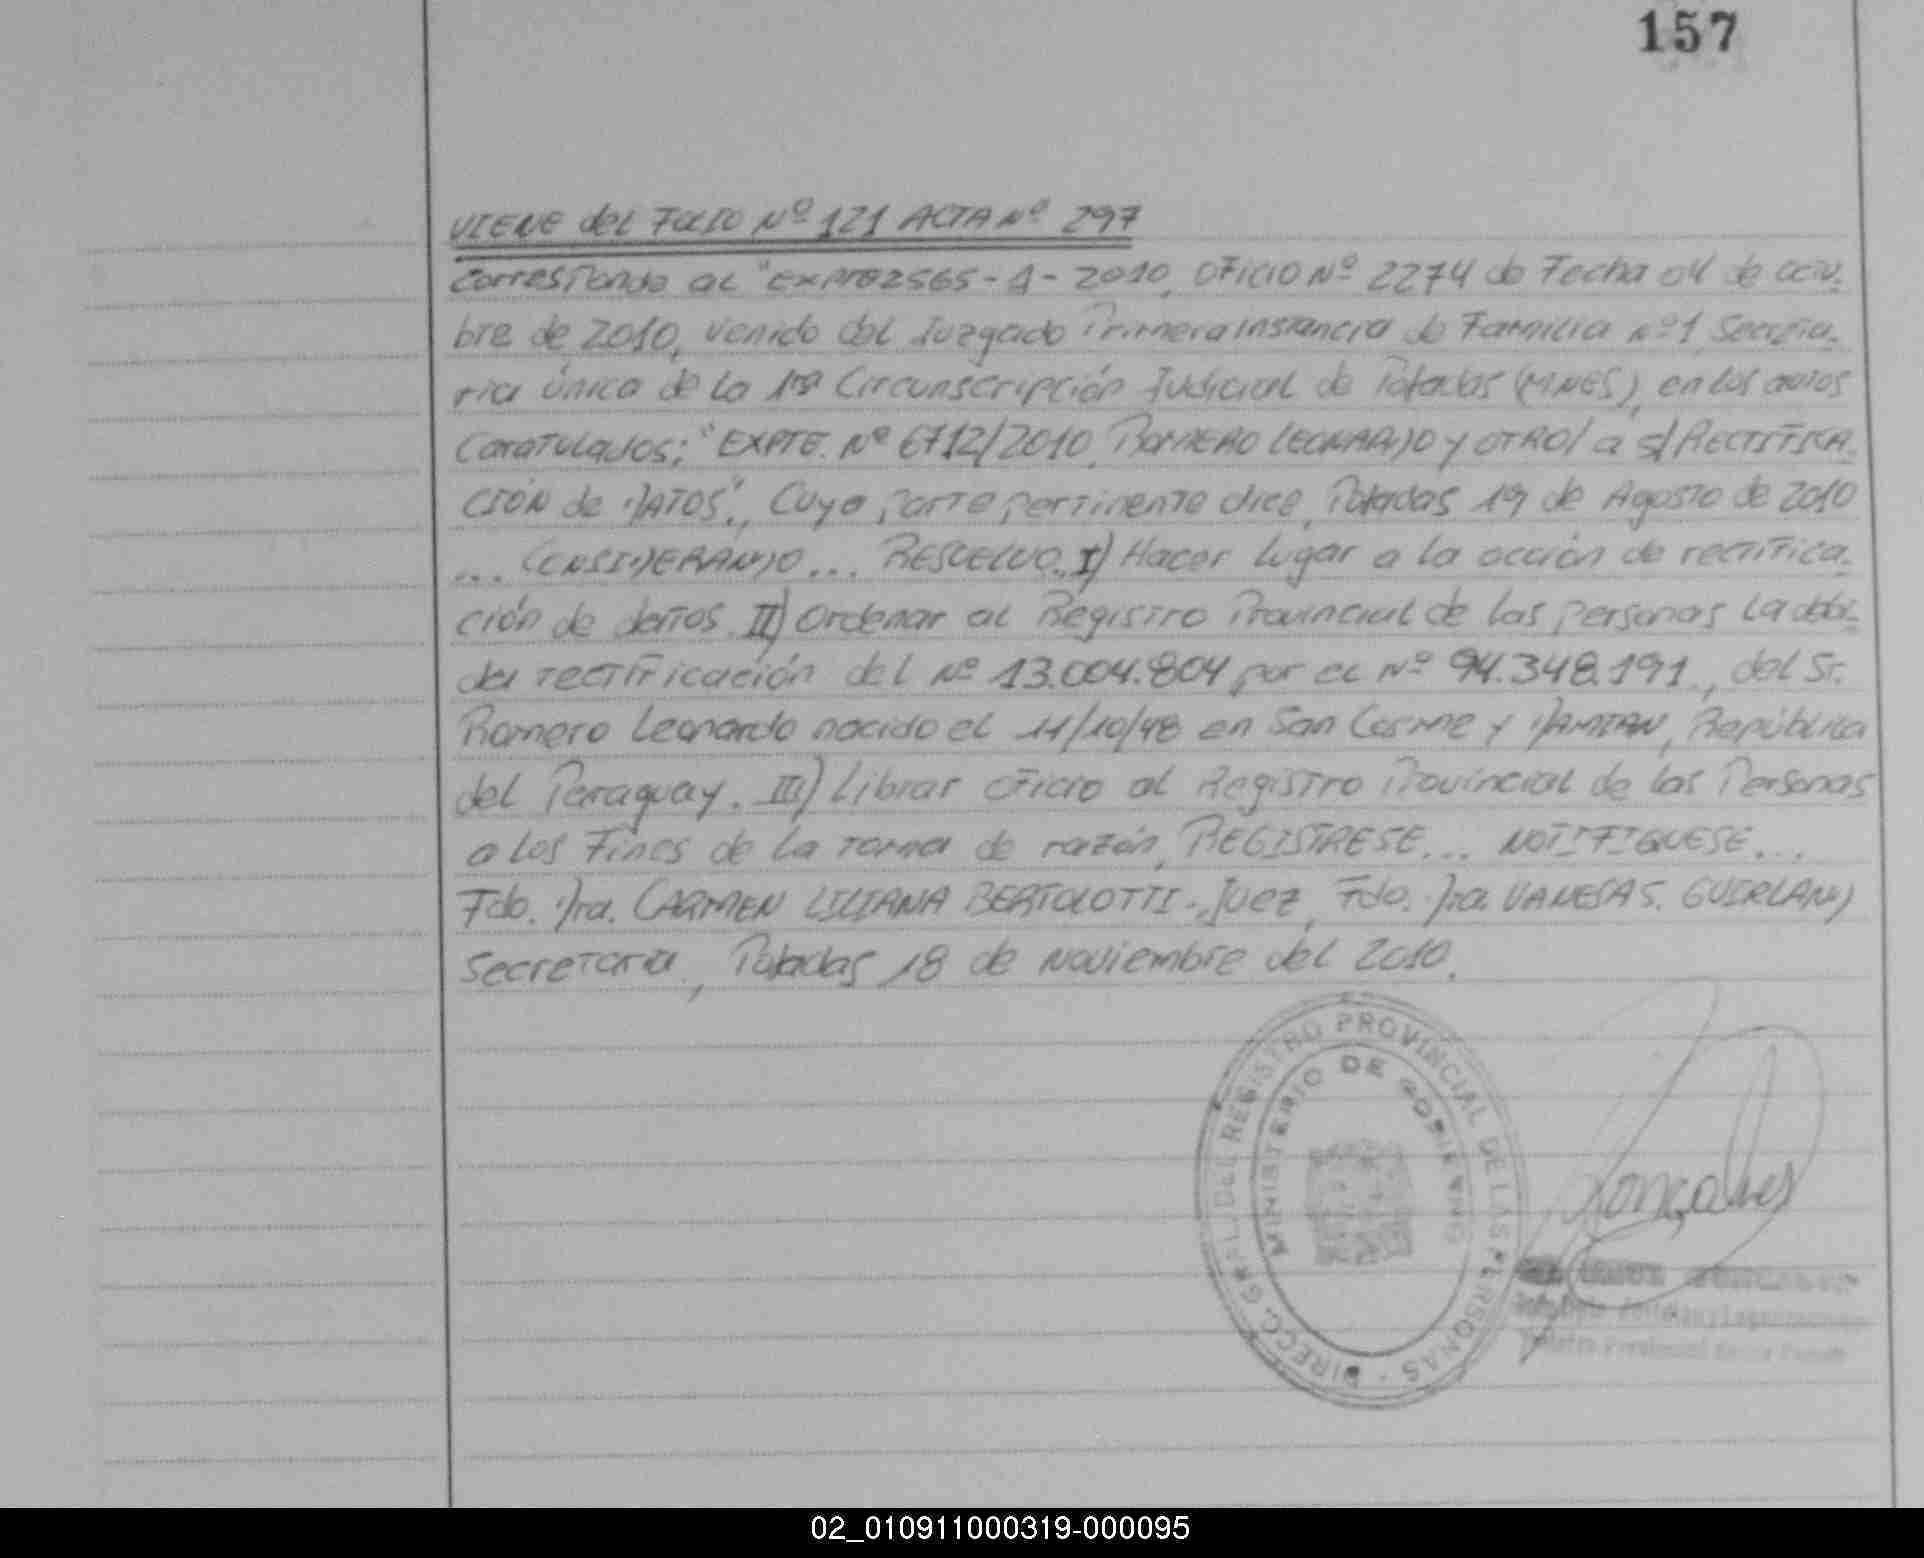 157
VIENE del Folio Nº 121 ACTA Nº 297
Corresponde al "EXPTE 2565-A-2010, Oficio Nº 2274 de Fecha 04 de octu-
bre de 2010, venido del Juzgado Primera Instancia de Familia Nº1, Secreta-
ria única de la 1ra Circunscripción Judicial de Posadas (MNES), en los autos
Caratulados; "EXPTE. Nº 6712/2010, ROMERO LEONARDO y OTRO/a s/RECTIFICA-
CIÓN de DATOS"., Cuya parte pertinente dice, Posadas 19 de Agosto de 2010
... CONSIDERANDO... RESUELVO. I) Hacer lugar a la acción de rectifica-
ción de datos. II) Ordenar al Registro Provincial de las personas la debi-
da rectificación del Nº 13.004.804 por el Nº 94.348.191., del Sr.
Romero Leonardo nacido el 11/10/48 en San Cosme y DAMIAN, República
del Paraguay. III) Librar oficio al Registro Provincial de las Personas
a los Fines de la toma de razón, REGISTRESE... NOTIFIQUESE...
Fdo. Dra. CARMEN LILIANA BERTOLOTTI-Juez, Fdo. Dra. VANESA S. GUIRLAND
Secretaria, Posadas 18 de Noviembre del 2010.
DIRECC. GRAL. DEL REGISTRO PROVINCIAL DE LAS PERSONAS
MINISTERIO DE GOBIERNO
Gonçalves
02_010911000319-000095